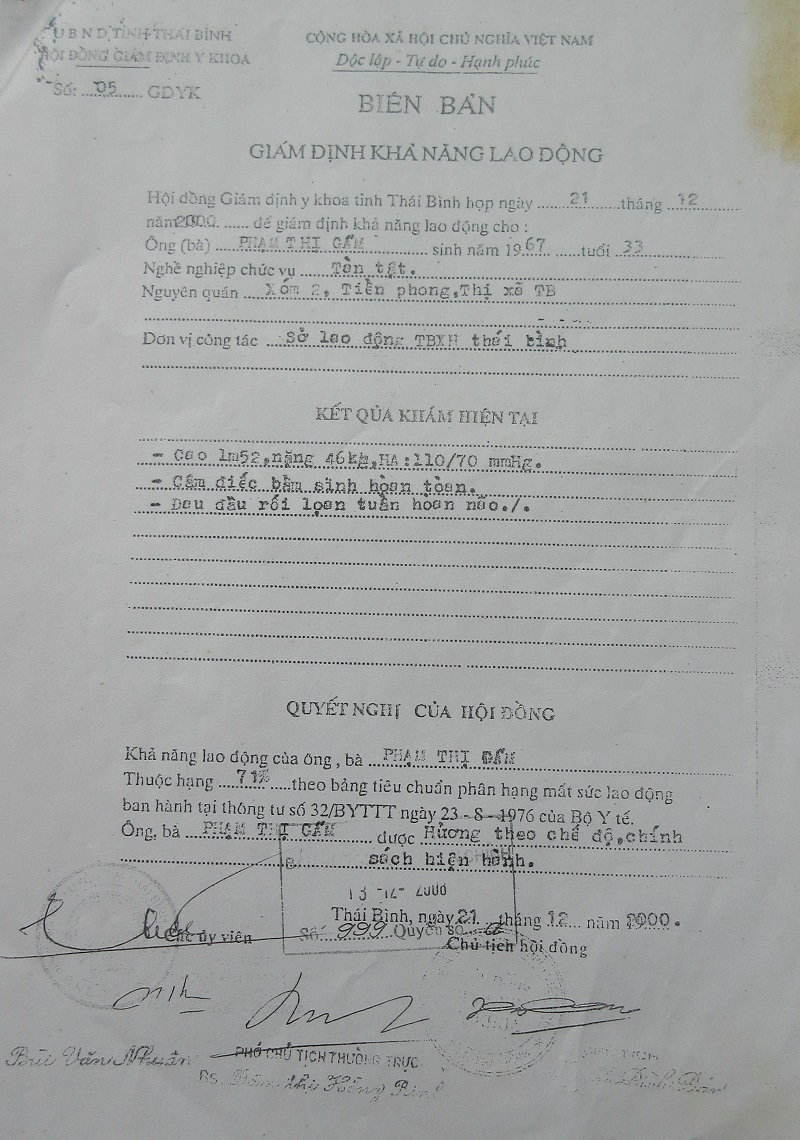 U B N D TỈNH THÁI BÌNH
HỘI ĐỒNG GIÁM ĐỊNH Y KHOA
Số: 05 GDYK
CỘNG HÒA XÃ HỘI CHỦ NGHĨA VIỆT NAM
Độc lập - Tự do - Hạnh phúc
BIÊN BẢN
GIÁM ĐỊNH KHẢ NĂNG LAO ĐỘNG
Hội đồng Giám định y khoa tỉnh Thái Bình họp ngày 21 tháng 12
năm 2000. để giám định khả năng lao động cho :
Ông (bà) PHẠM THỊ GẤM sinh năm 1967 tuổi 33
Nghề nghiệp chức vụ Tàn tật.
Nguyên quán Xóm 2, Tiền phong,Thị xã TB
Đơn vị công tác Sở lao động TBXH thái bình
KẾT QỦA KHÁM HIỆN TẠI
- Cao 1m52,nặng 46kg,HA:110/70 mmHg.
- Câm điếc bẩm sinh hòan tòan.
- Đau đầu rối lọan tuần hòan não./.
QUYẾT NGHỊ CỦA HỘI ĐỒNG
Khả năng lao động của ông , bà PHẠM THỊ GẤM
Thuộc hạng 71% theo bảng tiêu chuẩn phân hạng mất sức lao động
ban hành tại thông tư số 32/BYTTT ngày 23 - 8 - 1976 của Bộ Y tế.
Ông, bà PHẠM THỊ GẤM được Hưởng theo chế độ,chính
sách hiện hành.
Thái Bình, ngày 21 tháng 12 năm 2000.
Các ủy viên
Số 999 Quyển số
Chủ tịch hội đồng
Bùi Văn Nhuân
PHÓ CHỦ TỊCH THƯỜNG TRỰC
Bs.